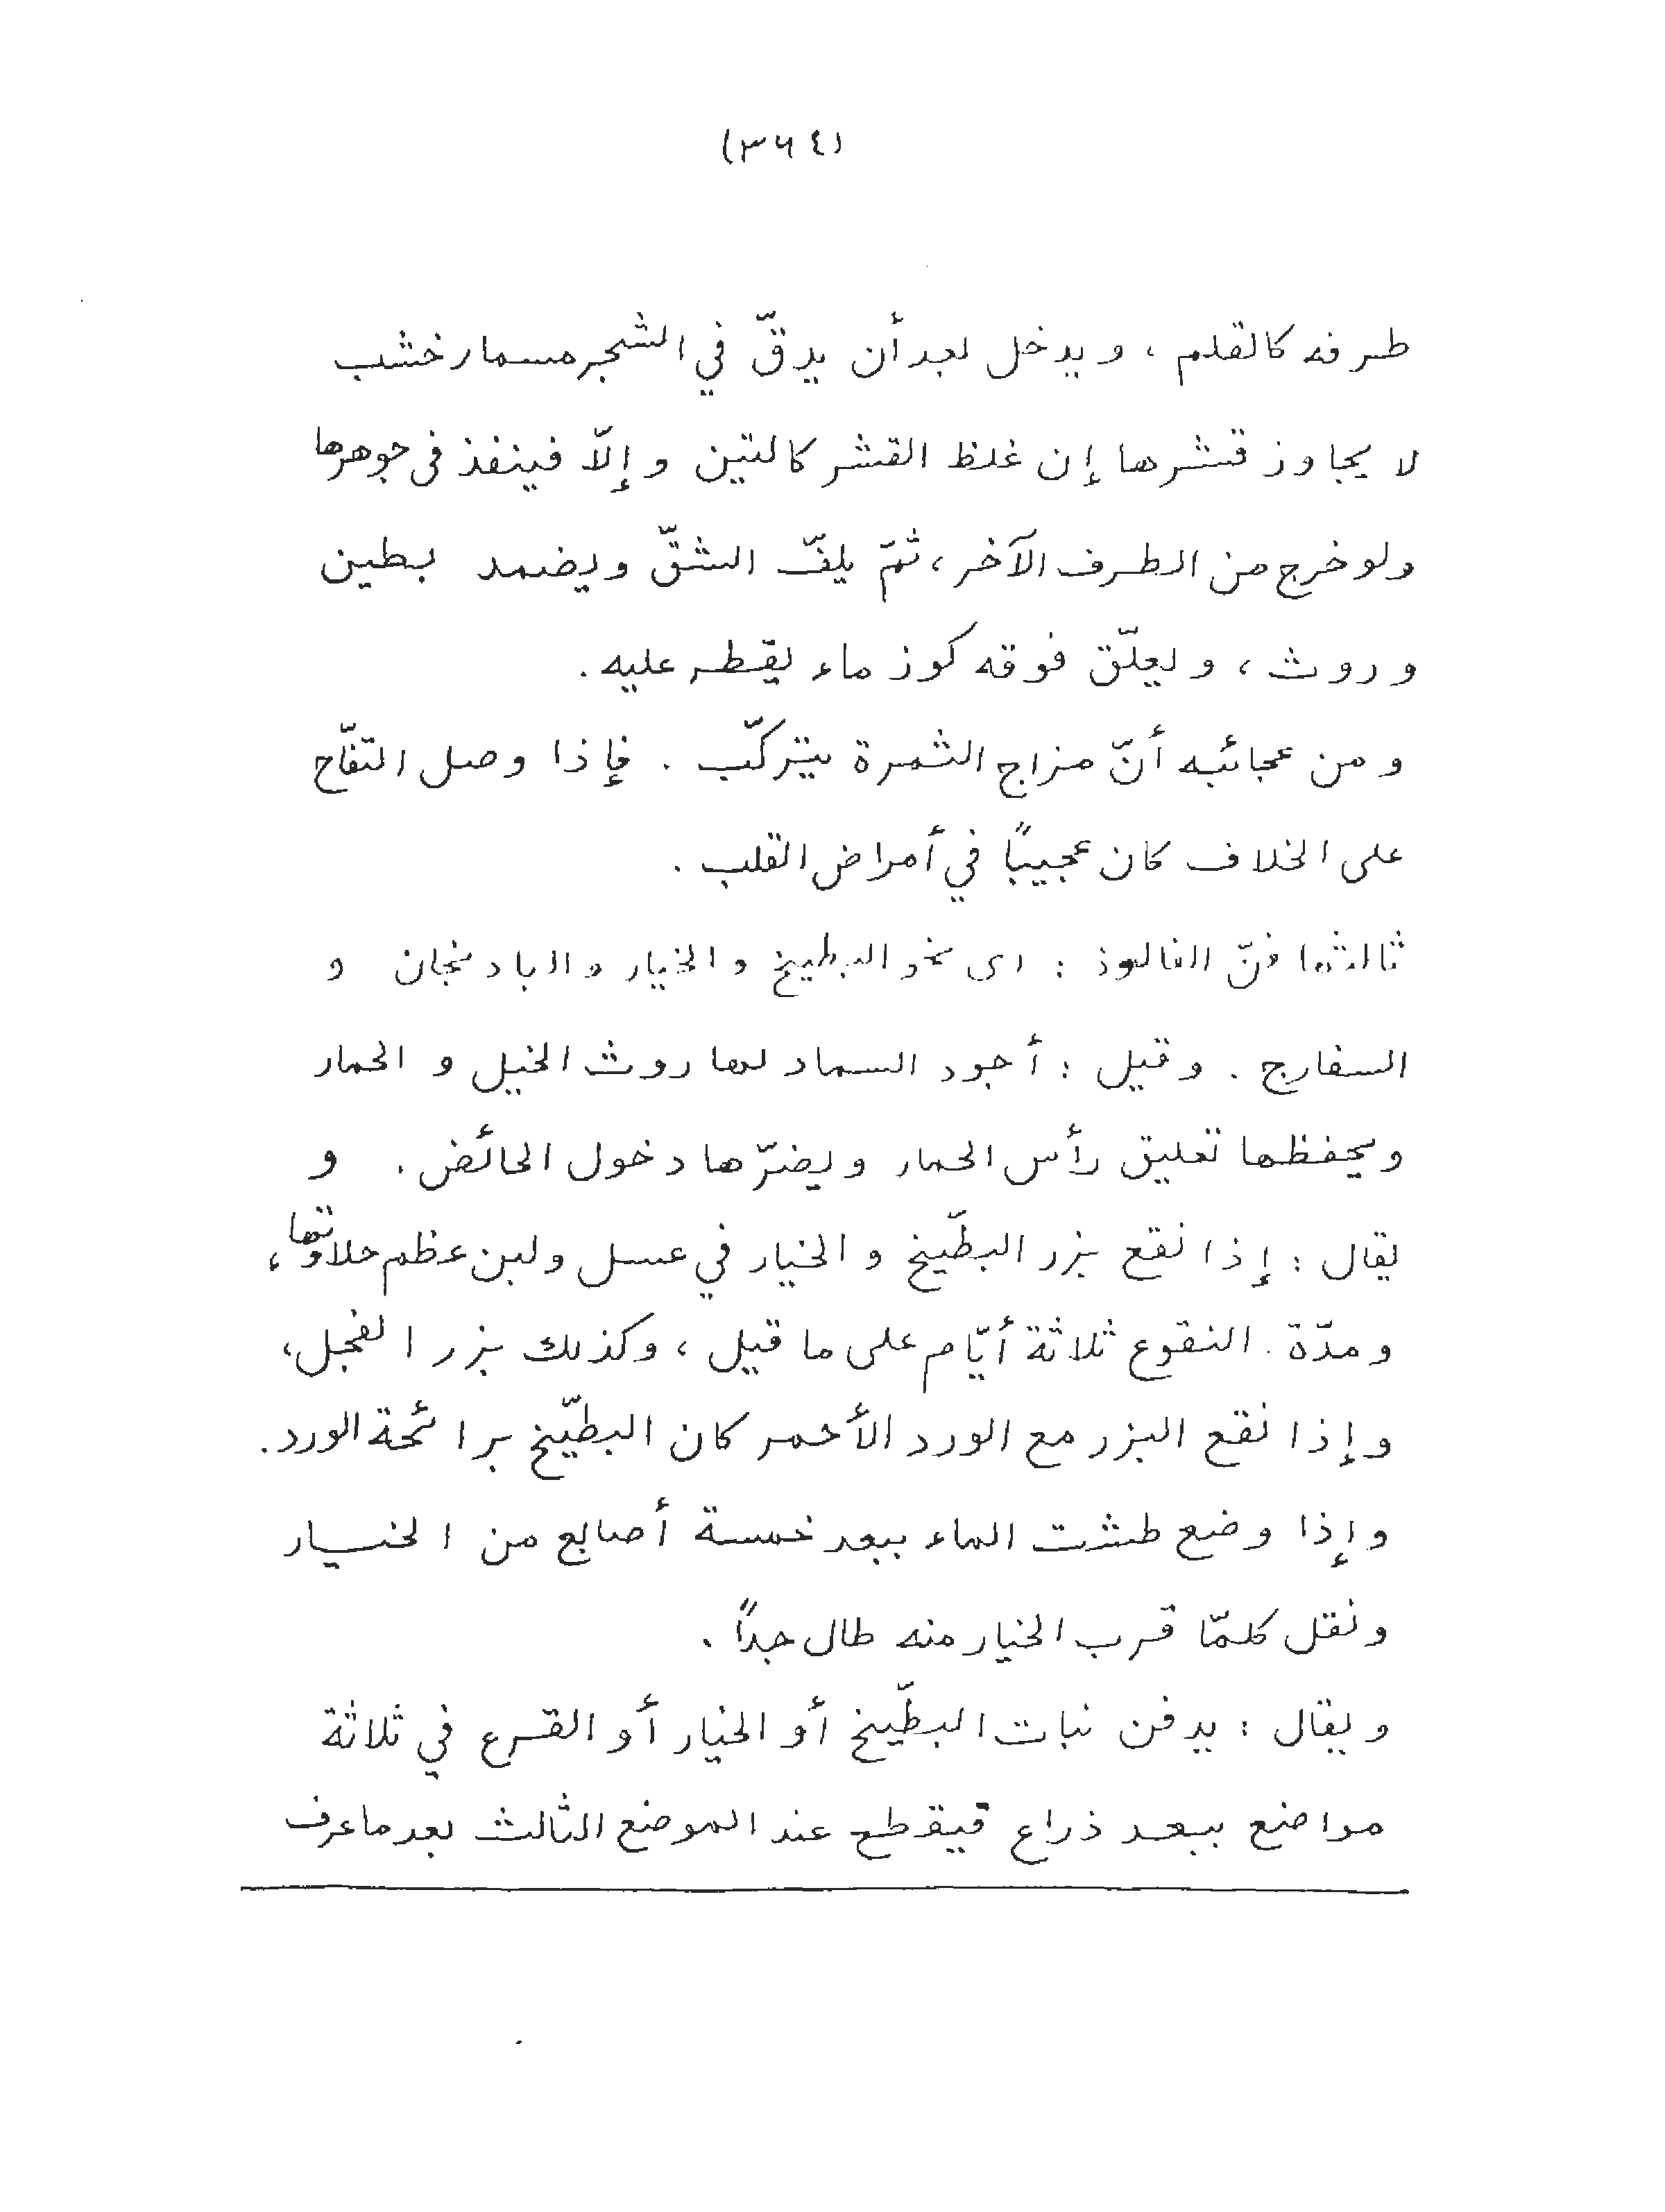 (٣٦٤)
طرفه كالقلم ، ويدخل بعد أن يدقّ في الشجر مسمار خشب
لا يجاوز قشرها إن غلظ القشر كالتين وإلّا فينفذ في جوهرها
ولو خرج من الطرف الآخر ، ثمّ يلفّ الشقّ ويضمد بطين
وروث ، ويعلّق فوقه كوز ماء يقطر عليه .
ومن عجائبه أنّ مزاج الثمرة يتركّب . فإذا وصل التفّاح
على الخلاف كان عجيبًا في أمراض القلب .
ثالثها فنّ الفالوذ : اى نحو البطيخ والخيار والبادنجان و
السفارج . وقيل : أجود السماد لها روث الخيل و الحمار
ويحفظها تعليق رأس الحمار ويضرّها دخول الحائض . و
يقال : إذا نقع بزر البطّيخ و الخيار في عسل ولبن عظم حلاوتها ،
ومدّة النقوع ثلاثة أيّام على ما قيل ، وكذلك بزر الفجل ،
وإذا نقع البزر مع الورد الأحمر كان البطّيخ برائحة الورد .
وإذا وضع طشت الماء ببعد خمسة أصابع من الخيار
ونقل كلمّا قرب الخيار منه طال جدًا .
ويقال : يدفن نبات البطّيخ أو الخيار أو القرع في ثلاثة
مواضع ببعد ذراع فيقطع عند الموضع الثالث بعد ما عرف